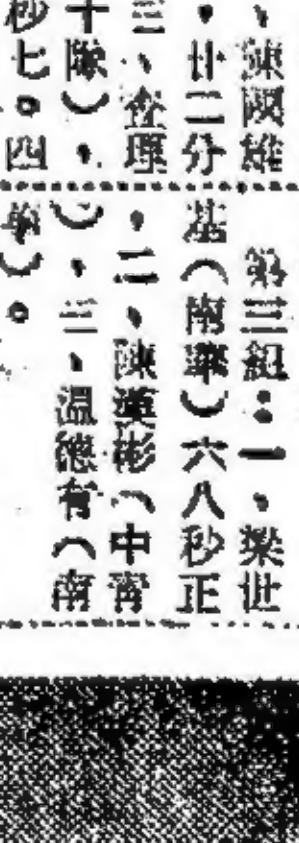 、陳國雄
，廿二分
三、查理
十隊），
秒七。四
第三組：一、梁世
基（南華）六八秒正
，二、陳漢彬（中靑
）、三、溫德有（南
華）。